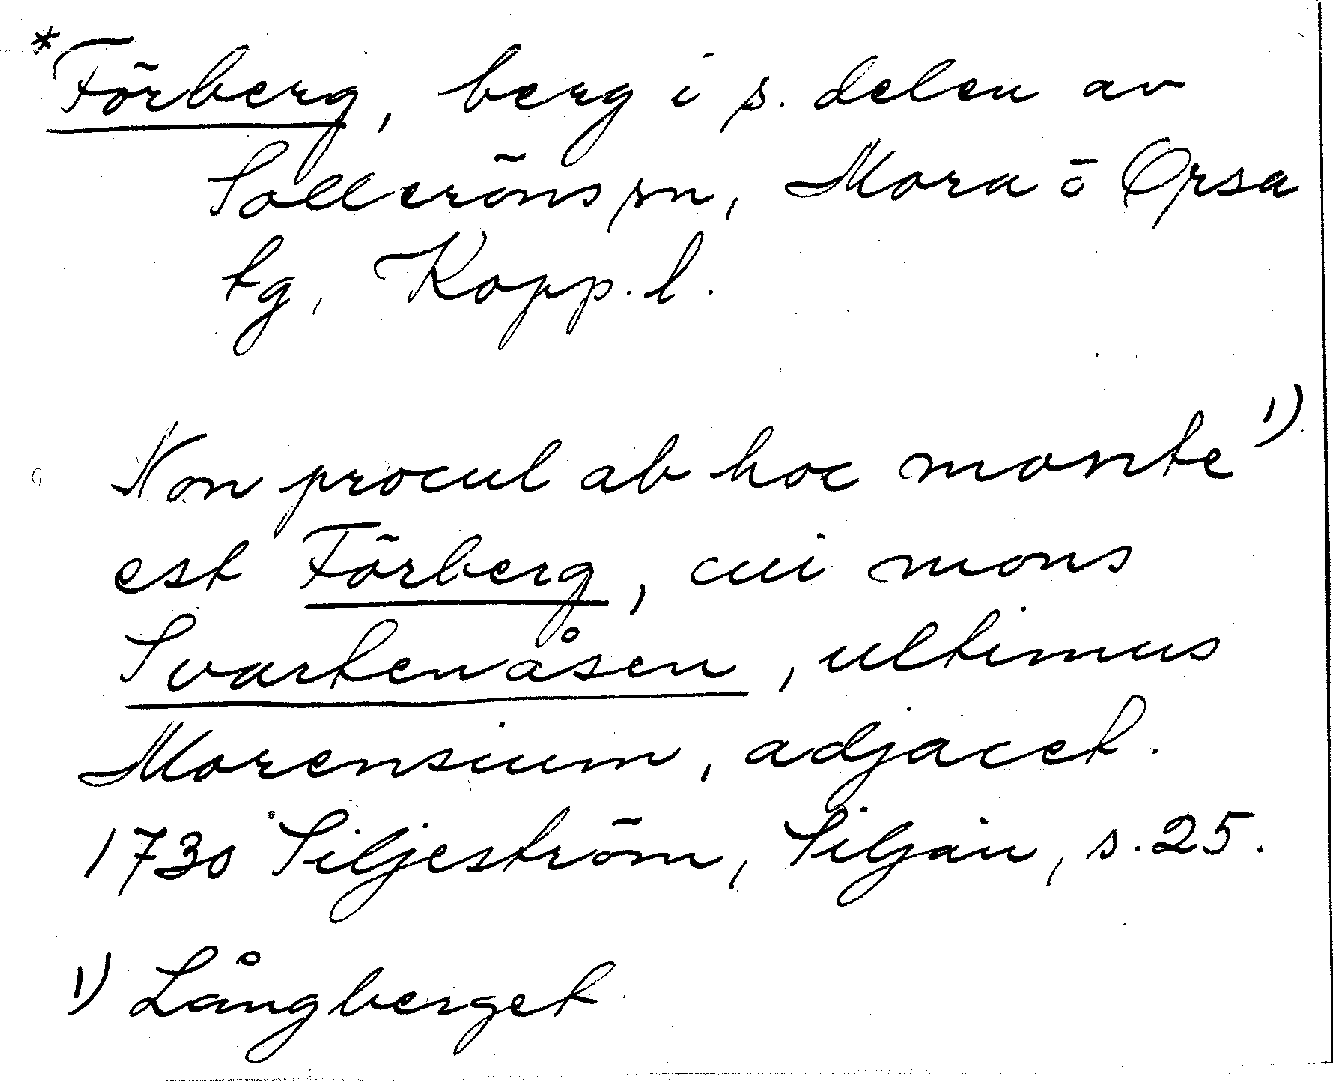 *Förberg, berg i s. delen av
Sollerön sn, Mora o Orsa
tg, Kopp. l.
Non procul ab hoc monte 1)
est Förberg, cui mons
Svartenåsen, ultimus
Morensium, adjacet.
1730 Siljeström, Siljan, s. 25.
1) Långberget